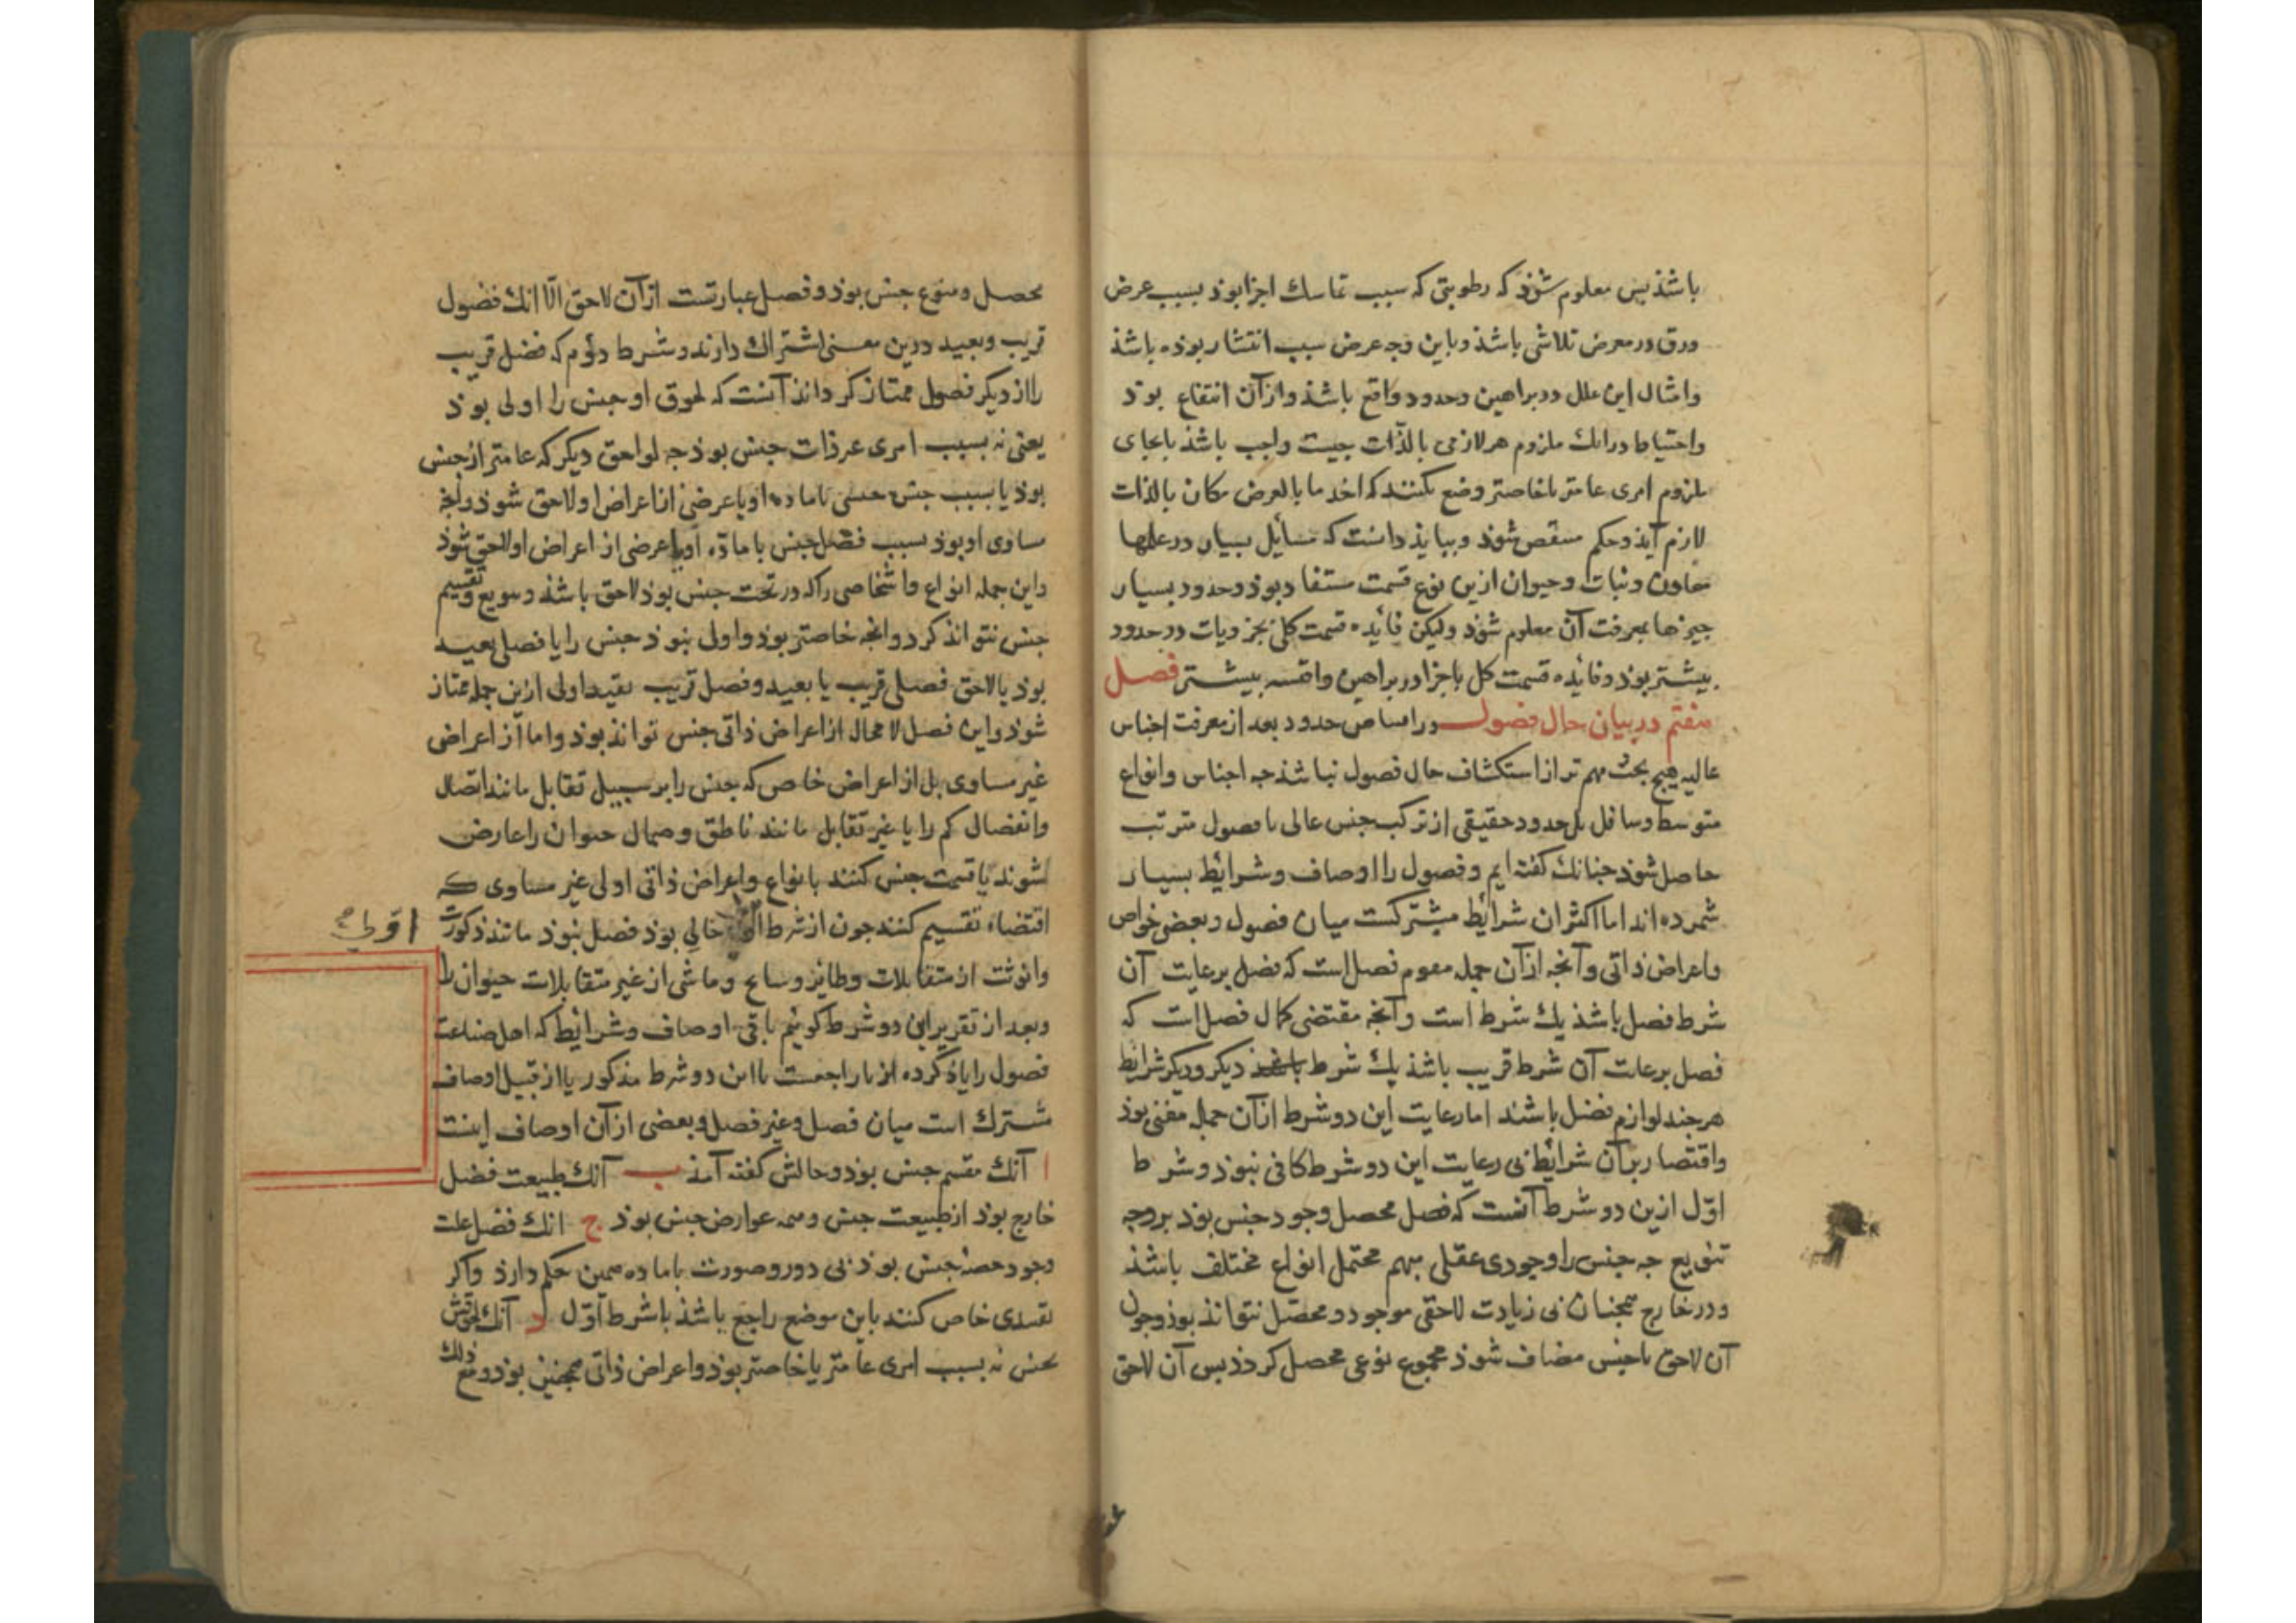 باشذ بس معلوم شوذ که رطوبتی که سبب تماسک اجزا بوذ بسبب عرض
ورق در معرض تلاشی باشذ و باین وجه عرض سبب انتشار بوذه باشذ
و امثال این علل در براهین و حدود واقع باشذ و از آن انتفاع بوذ
و احتیاط در انک ملزوم هر لازمی بالذات جیست واجب باشذ تا بجای
ملزوم امری عامتر یا خاصتر وضع نکنند که اخذ ما بالعرض مکان بالذات
لازم آیذ و حکم منتقض شوذ و ببایذ دانست که مسایل بسیار در علمها
معادن و نبات و حیوان ازین نوع قسمت مستفاد بوذ و حدود بسیار
جیزها بمعرفت آن معلوم شوذ ولیکن فائده قسمت کلی بجزویات در حدود
بیشتر بوذ و فایده قسمت کل باجزا در براهین و اقیسه بیشتر فصل
هفتم در بیان حال فصول در اقتناص حدود بعد از معرفت اجناس
عالیه هیج بحث مهم تر از استکشاف حال فصول نباشذ جه اجناس و انواع
متوسط و سافل بل حدود حقیقی از ترکب جنس عالی با فصول مترتب
حاصل شوذ جنانک کفته ایم و فصول را اوصاف و شرایط بسیار
شمرده اند اما اکثر ان شرایط مشترکست میان فصول و بعضی خواص
و اعراض ذاتی و آنجه از آن جمله مقوم فصل است که فصل برعایت آن
شرط فصل باشذ یک شرط است و آنجه مقتضی کمال فصل است که
فصل برعایت آن شرط قریب باشذ یک شرط باشذ دیکر و دیکر شرایط
هرجند لوازم فصل باشند اما رعایت این دو شرط از آن جمله مغنی بوذ
و اقتصار بر آن شرایط بی رعایت این دو شرط کافی نبوذ و شرط
اول ازین دو شرط آنست که فصل محصل وجود جنس بوذ بر وجه
تنویع جه جنس را وجودی عقلی مبهم محتمل انواع مختلف باشذ
و در خارج همجنان بی زیادت لاحقی موجود و محصل نتوانذ بوذ و جون
آن لاحق با جنس مضاف شوذ مجموع نوعی محصل کردذ بس آن لاحق
محصل و منوع جنس بوذ و فصل عبارتست از آن لاحق الا انک فصول
قریب و بعید درین معنی اشتراک دارند و شرط دوم که فصل قریب
را از دیکر فصول ممتاز کرداند آنست که لحوق او جنس را اولی بوذ
یعنی نه بسبب امری غیر ذات جنس بوذ جه لواحق دیکر که عامتر از جنس
بوذ یا بسبب جنس جنس یا ماده او یا عرضی از اعراض او لاحق شوذ و آنجه
مساوی او بوذ بسبب فصل جنس یا ماده او یا عرضی از اعراض او لاحق شوذ
و این جمله انواع و اشخاصی را که در تحت جنس بوذ لاحق باشذ و تنویع و تقسیم
جنس نتواند کرد و انجه خاصتر بوذ و اول نبوذ جنس را یا فصلی بعید
بوذ یا لاحق فصلی قریب یا بعید و فصل قریب بقید اولی ازین جمله ممتاز
شوذ و این فصل لا محال از اعراض ذاتی جنس تواند بوذ و اما از اعراض
غیر مساوی بل از اعراض خاص که جنس را بر سبیل تقابل مانند اتصال
و انفصال کم را یا غیر تقابل مانند ناطق و صهال حیوان را عارض
شوند یا قسمت جنس کنند بانواع و اعراض ذاتی اولی غیر مساوی که
اقتضاء تقسیم کنند جون از شرط خالی بوذ فصل نبوذ مانند ذکورت
اول
و انوثت از متقابلات و طایر و سابح و ماشی از غیر متقابلات حیوان را
و بعد از تقریر این دو شرط کوئیم باقی اوصاف و شرایط که اهل صناعت
فصول را یاذ کرده اند یا راجعست باین دو شرط مذکور یا از قبیل اوصاف
مشترک است میان فصل و غیر فصل و بعضی از آن اوصاف اینست
ا آنک مقسم جنس بوذ و حالش کفته آمذ ب آنک طبیعت فصل
خارج بوذ از طبیعت جنس و همه عوارض جنس بوذ ج انک فصل علت
وجود حصه جنس بوذ بی دور و صورت با ماده همین حکم دارذ و اکر
تقییدی خاص کنند باین موضع راجع باشذ با شرط اول د آنک لحوقش
بجنس نه بسبب امری عامتر یا خاصتر بوذ و اعراض ذاتی همجنین بوذ و مع ذلک